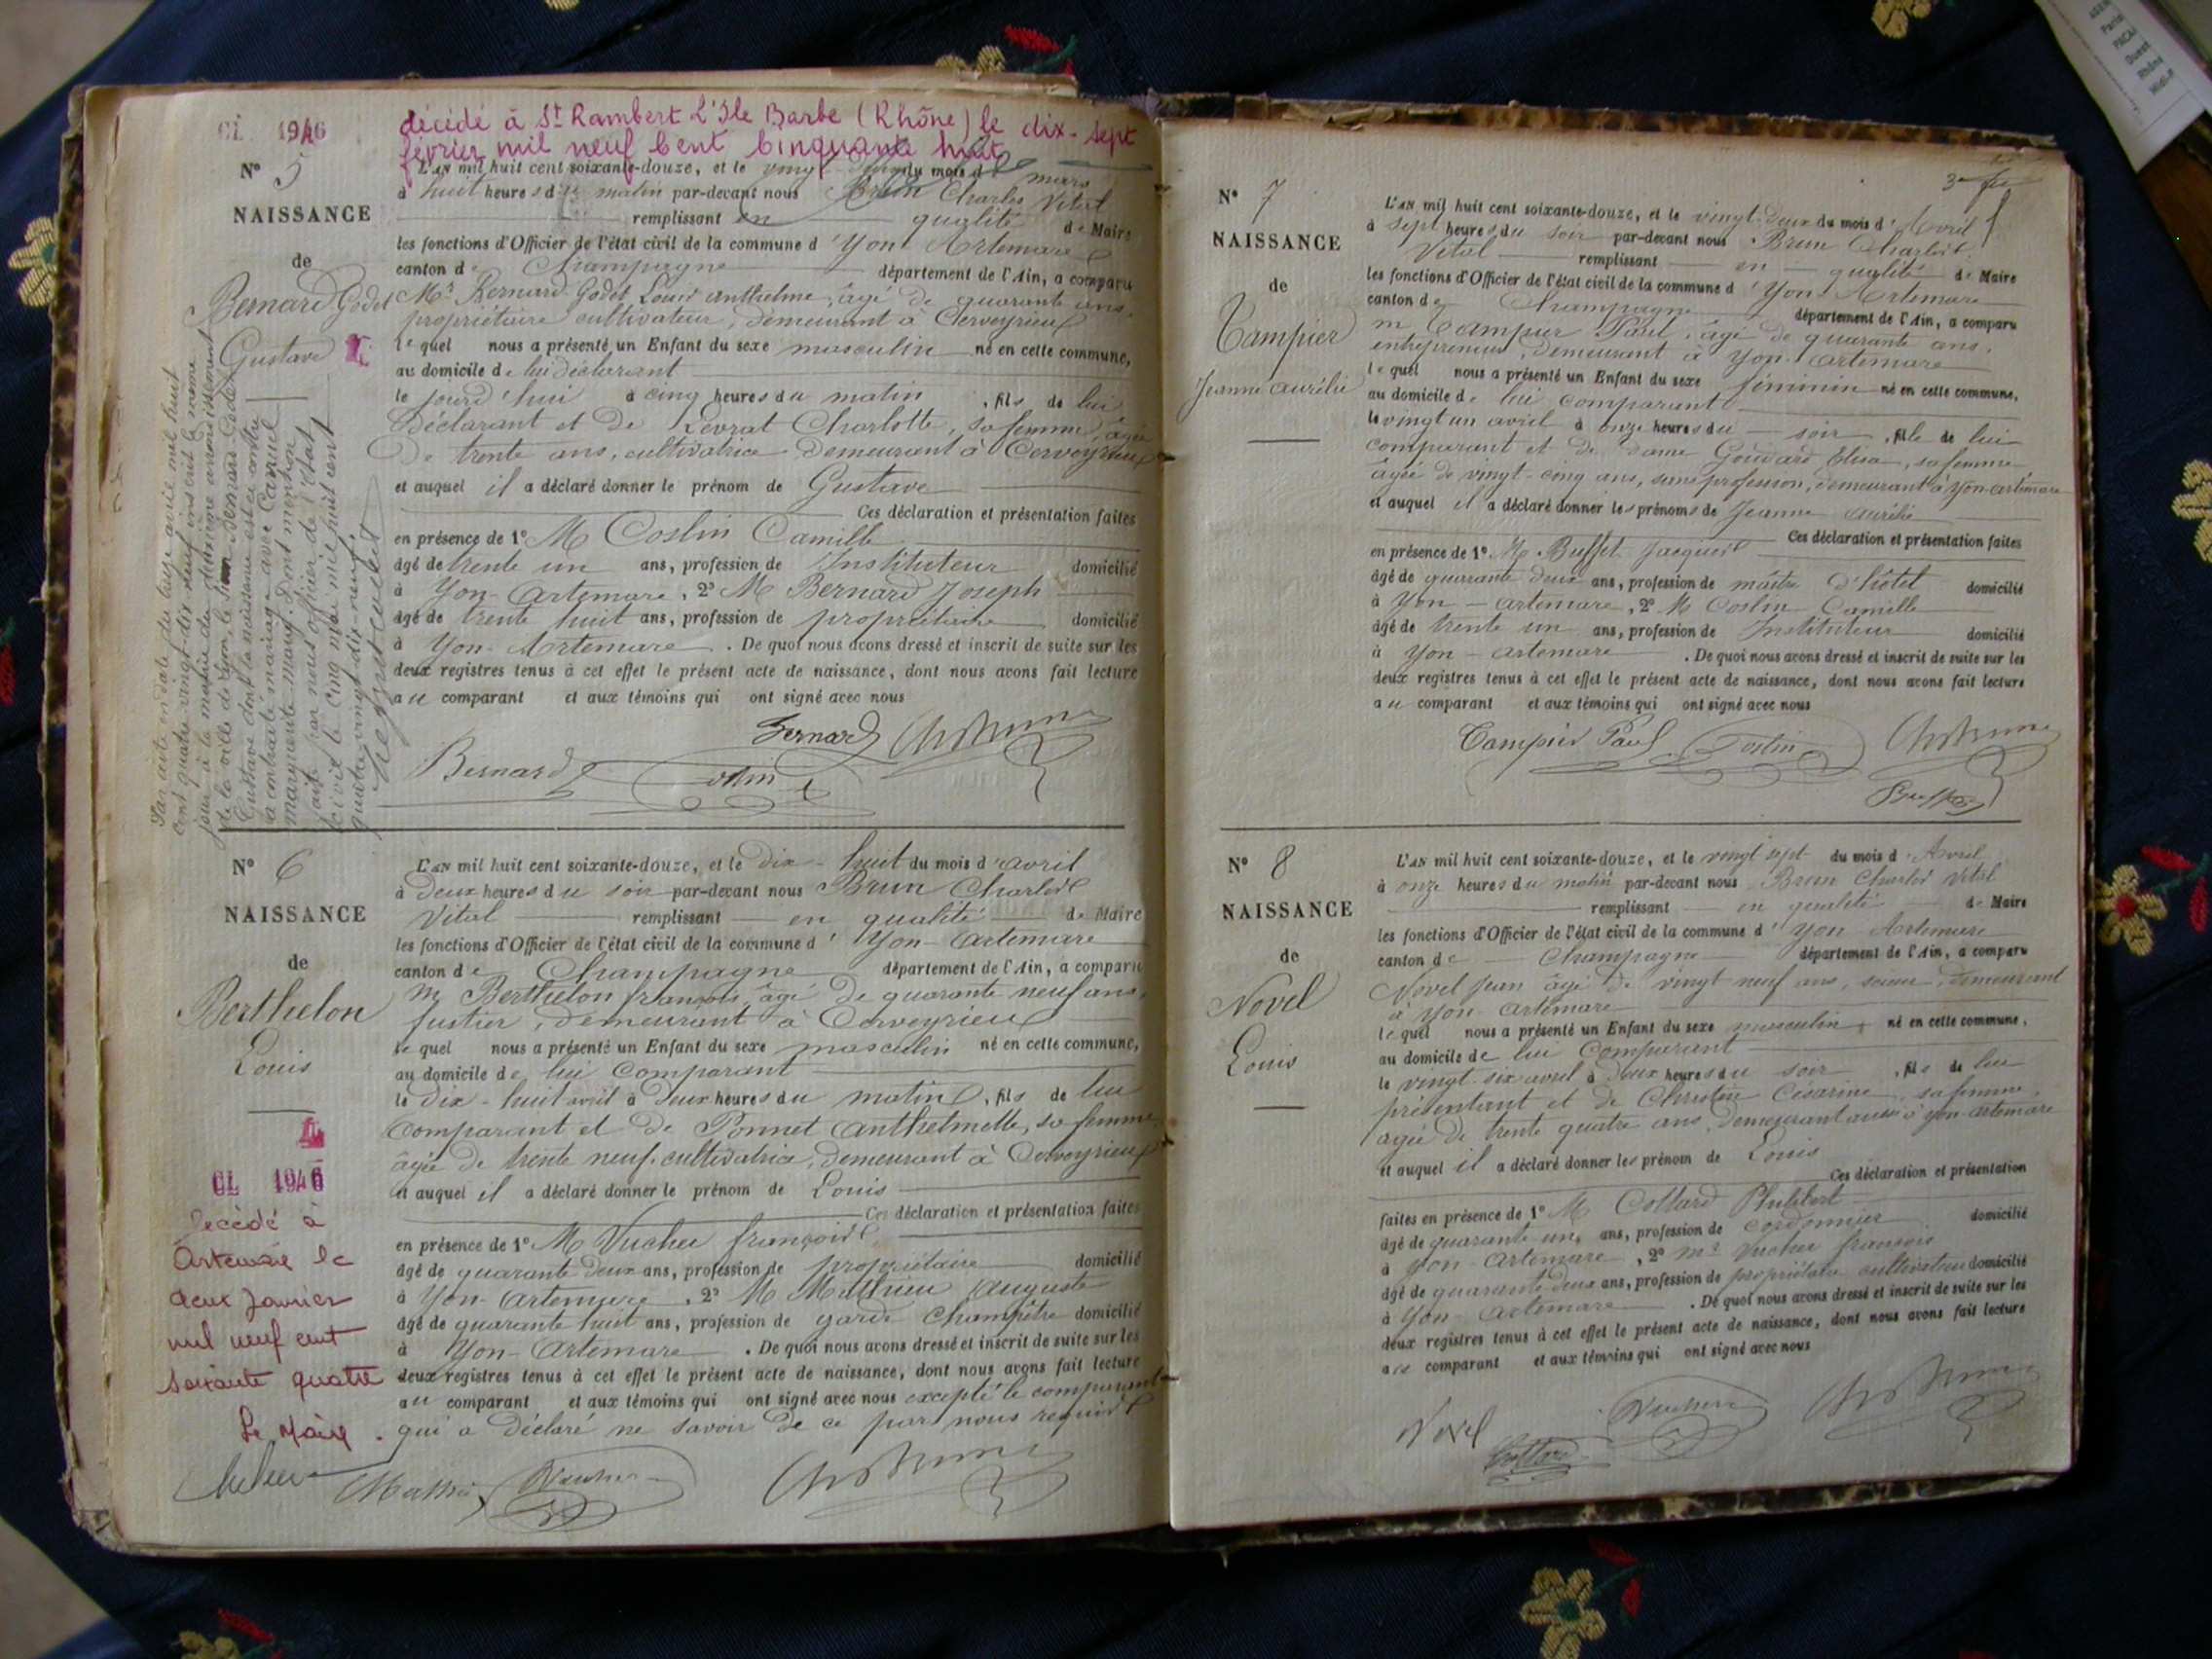 CL 1946
décédé à St Rambert L'Ile Barbe (Rhône) le dix-sept
février mil neuf Cent Cinquante huit
N° 5
NAISSANCE
de
Bernard Godet
Gustave
L'AN mil huit cent soixante-douze, et le vingt du mois de mars
à huit heures du matin par-devant nous Brun Charles Vital
remplissant en qualité de Maire
les fonctions d'Officier de l'état civil de la commune d'Yon Artemare
canton de Champagne département de l'Ain, a comparu
Mr Bernard Godet Louis Anthelme, âgé de quarante ans,
propriétaire cultivateur, demeurant à Cerveyrieu
lequel nous a présenté un Enfant du sexe masculin né en cette commune,
au domicile de lui déclarant
le jourd'hui à cinq heures du matin, fils de lui
déclarant et de Levrat Charlotte, sa femme, âgée
de trente ans, cultivatrice demeurant à Cerveyrieu
et auquel il a déclaré donner le prénom de Gustave
Ces déclaration et présentation faites
en présence de 1° M Costin Camille
âgé de trente un ans, profession de Instituteur domicilié
à Yon-Artemare, 2° M Bernard Joseph
âgé de trente huit ans, profession de propriétaire domicilié
à Yon-Artemare. De quoi nous avons dressé et inscrit de suite sur les
deux registres tenus à cet effet le présent acte de naissance, dont nous avons fait lecture
au comparant et aux témoins qui ont signé avec nous
Bernard
Bernard Costin
Par acte en date du treize avril mil huit
cent quatre vingt-dix neuf inscrit le même
jour à la mairie du deuxième arrondissement
de la ville de Lyon, le Bernard Godet
Gustave dont la naissance est ci-contre
a contracté mariage avec Canuel
Marguerite Dont mention
faite par nous officier de l'état
civil le cinq mai mil huit cent
quatre vingt-dix-neuf.
N° 6
NAISSANCE
de
Berthelon
Louis
CL 1946
Décédé à
Artemare le
deux Janvier
mil neuf cent
soixante quatre
Le Maire.
L'AN mil huit cent soixante-douze, et le dix-huit du mois d'avril
à deux heures du soir par-devant nous Brun Charles
Vital remplissant en qualité de Maire
les fonctions d'Officier de l'état civil de la commune d'Yon-Artemare
canton de Champagne département de l'Ain, a comparu
M Berthelon françois, âgé de quarante neuf ans,
fustier, demeurant à Cerveyrieu
lequel nous a présenté un Enfant du sexe masculin né en cette commune,
au domicile de lui Comparant
le dix-huit avril à deux heures du matin, fils de lui
Comparant et de Ponnet Anthelmette, sa femme
âgée de trente neuf, cultivatrice, demeurant à Cerveyrieu
et auquel il a déclaré donner le prénom de Louis
Ces déclaration et présentation faites
en présence de 1° M Vucher françois
âgé de quarante deux ans, profession de propriétaire domicilié
à Yon-Artemare, 2° M Mathieu Auguste
âgé de quarante huit ans, profession de garde champêtre domicilié
à Yon-Artemare. De quoi nous avons dressé et inscrit de suite sur les
deux registres tenus à cet effet le présent acte de naissance, dont nous avons fait lecture
au comparant et aux témoins qui ont signé avec nous excepté le comparant
qui a déclaré ne savoir de ce par nous requis
Mathieu Vucher
N° 7
NAISSANCE
de
Tampier
Jeanne Aurélie
L'AN mil huit cent soixante-douze, et le vingt-deux du mois d'Avril
à sept heures du soir par-devant nous Brun Charles
Vital remplissant en qualité de Maire
les fonctions d'Officier de l'état civil de la commune d'Yon-Artemare
canton de Champagne département de l'Ain, a comparu
M Tampier Paul, âgé de quarante ans,
entrepreneur, demeurant à Yon-Artemare
lequel nous a présenté un Enfant du sexe féminin né en cette commune,
au domicile de lui comparant
le vingt un avril à onze heures du soir, fille de lui
comparant et de dame Goddard Elisa, sa femme
âgée de vingt-cinq ans, sans profession, demeurant à Yon-Artemare
et auquel il a déclaré donner les prénoms de Jeanne Aurélie
Ces déclaration et présentation faites
en présence de 1° M. Buffet Jacques
âgé de quarante deux ans, profession de maître d'hôtel domicilié
à Yon-Artemare, 2° M Costin Camille
âgé de trente un ans, profession de Instituteur domicilié
à Yon-Artemare. De quoi nous avons dressé et inscrit de suite sur les
deux registres tenus à cet effet le présent acte de naissance, dont nous avons fait lecture
au comparant et aux témoins qui ont signé avec nous
Tampier Paul Costin
Buffet
N° 8
NAISSANCE
de
Novel
Louis
L'AN mil huit cent soixante-douze, et le vingt sept du mois d'Avril
à onze heures du matin par-devant nous Brun Charles Vital
remplissant en qualité de Maire
les fonctions d'Officier de l'état civil de la commune d'Yon Artemare
canton de Champagne département de l'Ain, a comparu
Novel jean âgé de vingt neuf ans, scieur, demeurant
à Yon-Artemare
lequel nous a présenté un Enfant du sexe masculin, né en cette commune,
au domicile de lui Comparant
le vingt-six avril à deux heures du soir, fils de lui
présentant et de Christin Césarine, sa femme,
âgée de trente quatre ans, demeurant aussi à Yon-Artemare
et auquel il a déclaré donner les prénom de Louis
Ces déclaration et présentation
faites en présence de 1° M Collard Philibert
âgé de quarante un ans, profession de cordonnier domicilié
à Yon-Artemare, 2° Mr Vucher françois
âgé de quarante-deux ans, profession de propriétaire cultivateur domicilié
à Yon-Artemare. De quoi nous avons dressé et inscrit de suite sur les
deux registres tenus à cet effet le présent acte de naissance, dont nous avons fait lecture
au comparant et aux témoins qui ont signé avec nous
Novel Vucher
Collard